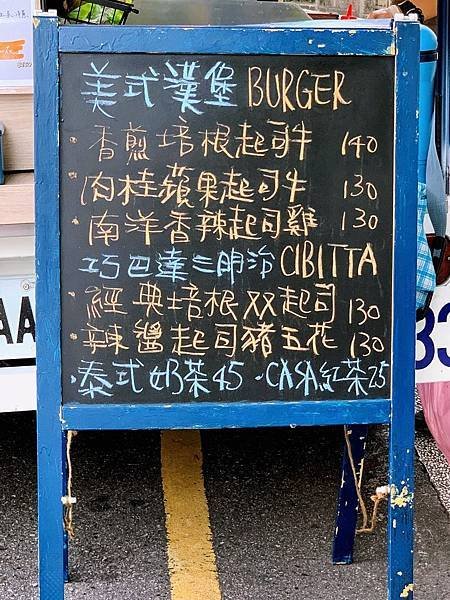 美式漢堡 BURGER
·香煎培根起司牛 140
·肉桂蘋果起司牛 130
·南洋香辣起司雞 130
巧巴達三明治 CIBITTA
·經典培根双起司 130
·辣醬起司豬五花 130
·泰式奶茶45 ·CASA紅茶25